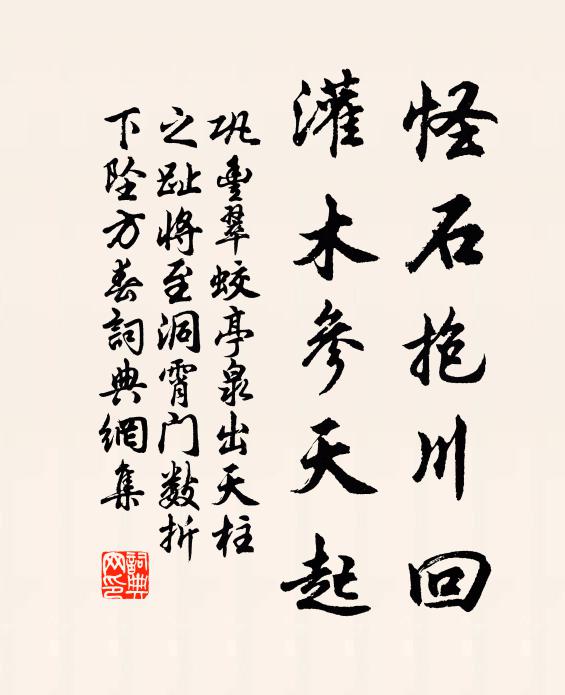 怪石抱川回
灌木參天起
巩豊翠蛟亭泉出天柱
之趾將至洞霄门数折
下坠方春詞典網集
詞典
网印